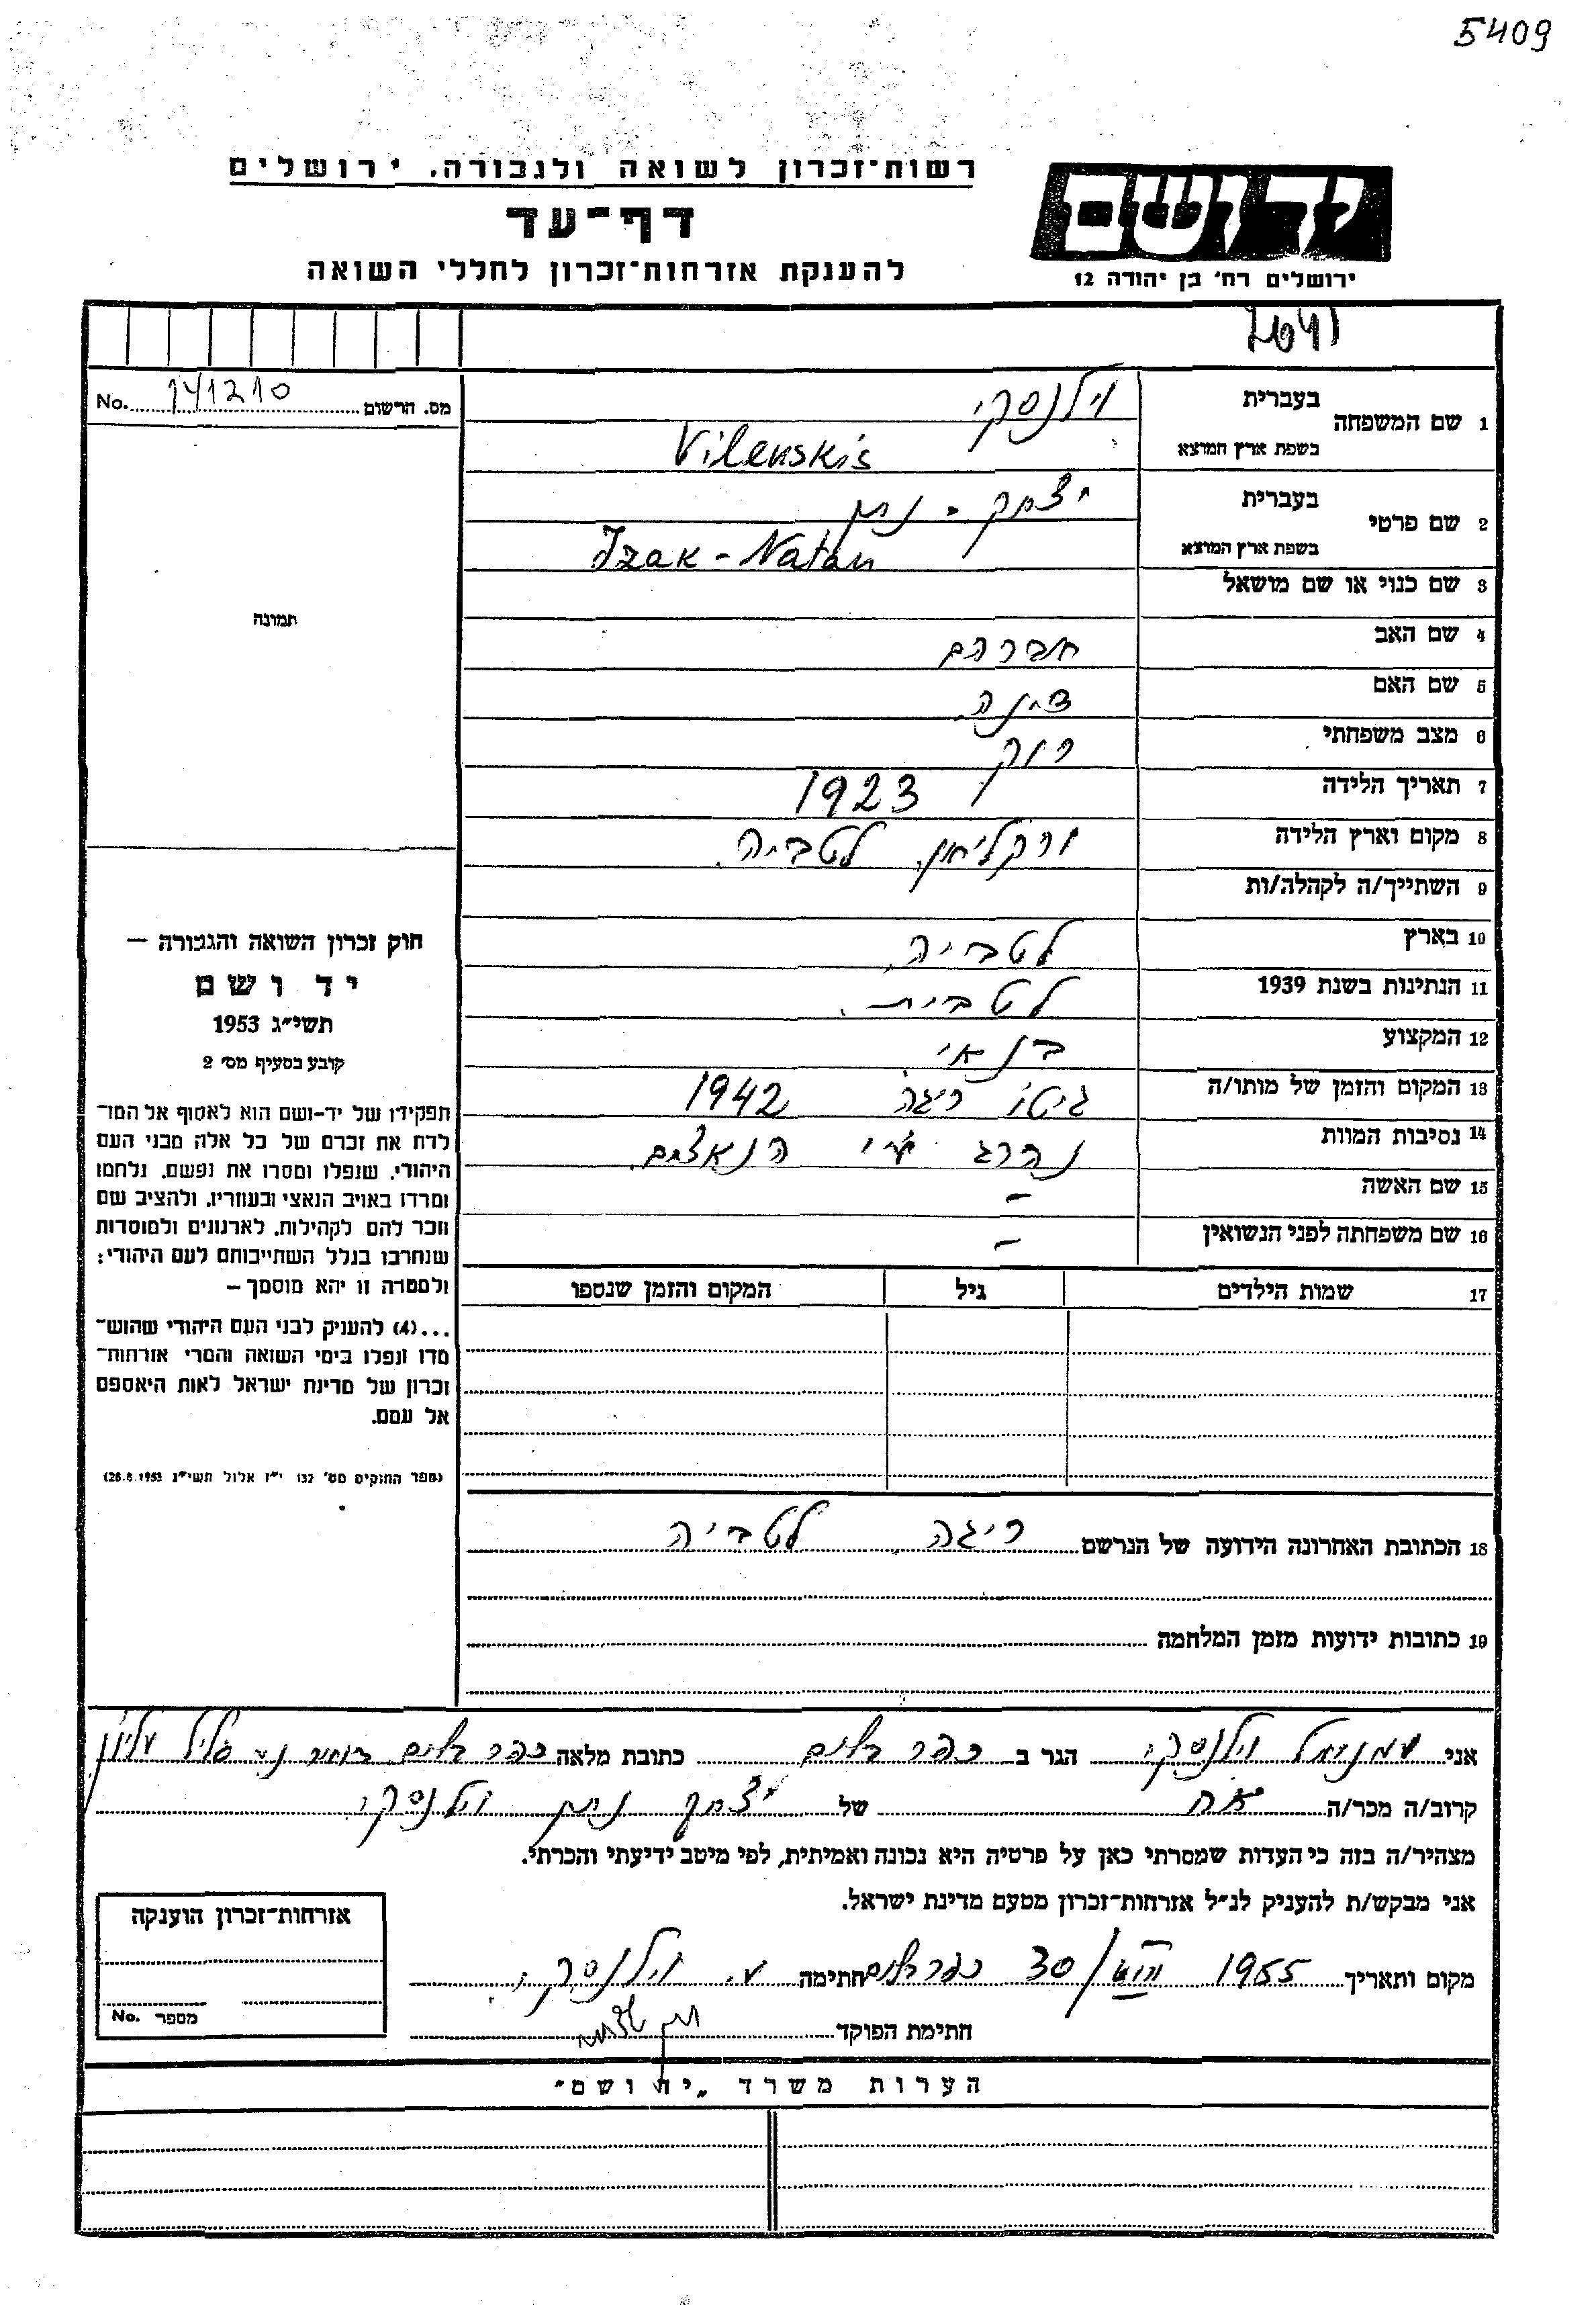 5409
רשות־זכרון לשואה ולגבורה. ירושלים
ידושם
דף־עד
ירושלים רח' בן יהודה 12
להענקת אזרחות־זכרון לחללי השואה
No. 141210 מס. הרשום
1 שם המשפחה
בעברית וילנסקי
בשפת ארץ המוצא Vilenskis
2 שם פרטי
בעברית יצחק - נתן
בשפת ארץ המוצא Izak - Natan
3 שם כנוי או שם מושאל
4 שם האב אברהם
5 שם האם צינה
6 מצב משפחתי רווק
7 תאריך הלידה 1923
8 מקום וארץ הלידה ורקליאן. לטביה.
9 השתייך/ה לקהלה/ות
10 בארץ לטביה
11 הנתינות בשנת 1939 לטבית.
12 המקצוע בנאי
13 המקום והזמן של מותו/ה גיטו ריגה 1942
14 נסיבות המוות נהרג ע״י הנאצים.
15 שם האשה –
16 שם משפחתה לפני הנשואין –
17 שמות הילדים גיל המקום והזמן שנספו
18 הכתובת האחרונה הידועה של הנרשם ריגה לטביה
19 כתובות ידועות מזמן המלחמה
תמונה
חוק זכרון השואה והגבורה –
יד ושם
תשי״ג 1953
קובע בסעיף מס׳ 2
תפקידו של יד־ושם הוא לאסוף אל המו־
לדת את זכרם של כל אלה מבני העם
היהודי, שנפלו ומסרו את נפשם, נלחמו
ומרדו באויב הנאצי ובעוזריו, ולהציב שם
וזכר להם לקהילות, לארגונים ולמוסדות
שנחרבו בגלל השתייכותם לעם היהודי:
ולמטרה זו יהא מוסמך –
...(4) להעניק לבני העם היהודי שהוש־
מדו ונפלו בימי השואה והמרי אזרחות־
זכרון של מדינת ישראל לאות היאספם
אל עמם.
(ספר החוקים מס׳ 132 י״ז אלול תשי״ג 28.8.1953)
אני עמנואל וילנסקי הגר ב כפר בלום כתובת מלאה כפר בלום גליל עליון
קרוב/ה מכר/ה אח של יצחק נתן וילנסקי
מצהיר/ה בזה כי העדות שמסרתי כאן על פרטיה היא נכונה ואמיתית, לפי מיטב ידיעתי והכרתי.
אני מבקש/ת להעניק לנ״ל אזרחות־זכרון מטעם מדינת ישראל.
מקום ותאריך 1955 / 30 כפר בלום חתימה ע. וילנסקי.
חתימת הפוקד
אזרחות־זכרון הוענקה
מספר No.
הערות משרד „יד ושם״